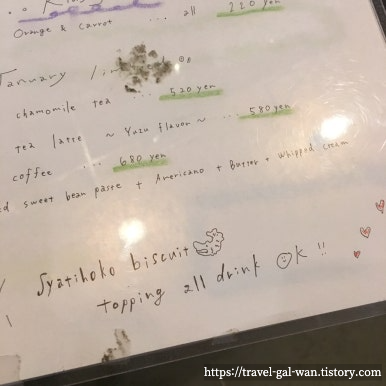 Orange & carrot ... all 220 yen
January
chamomile tea ... 520 yen
tea latte ~ Yuzu flavor ~ ... 580 yen
coffee ... 680 yen
sweet bean paste + Americano + Butter + whipped cream
Syatihoko biscuit
topping all drink OK!!
https://travel-gal-wan.tistory.com